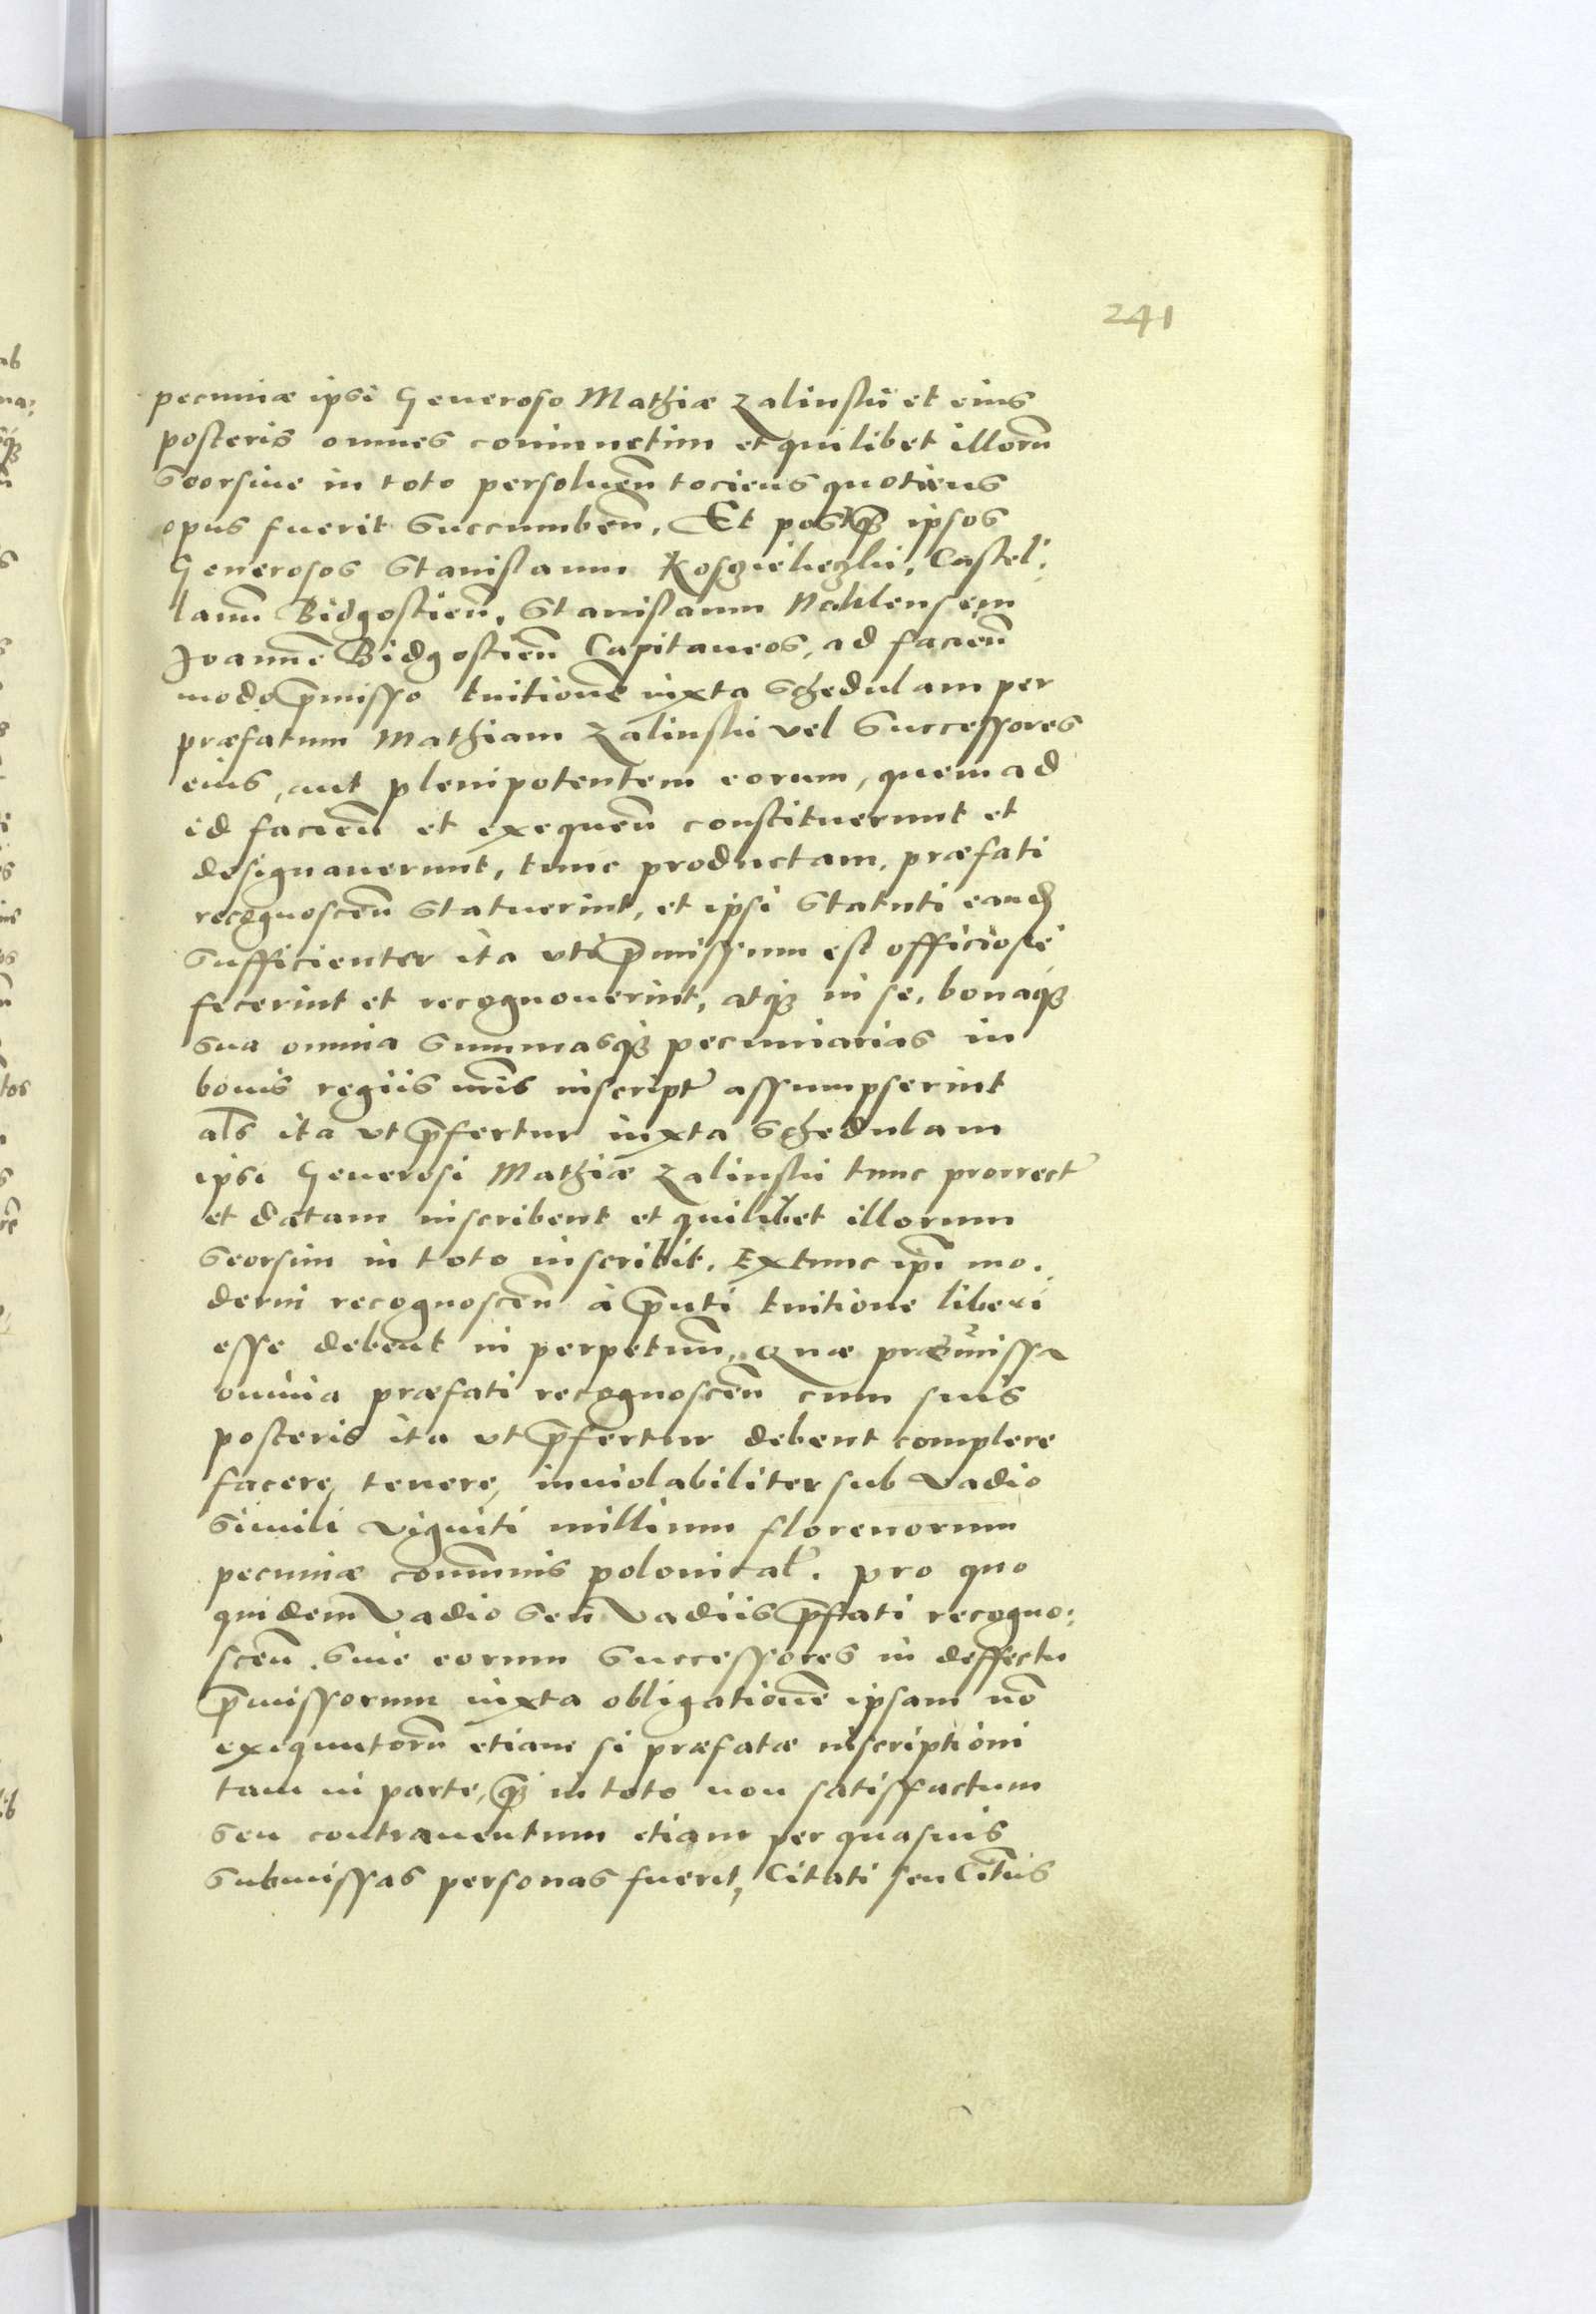 241
pecuniæ ipsi Generoso Mathiæ Zalinskii et eius
posteris omnes coniunctim et quilibet illorū
seorsiue in toto persoluen̄ tociens quotiens
opus fuerit succumben̄. Et postq̄ȝ ipsos
Generosos Stanislaum Kosczieleczkii, Castel:
lanū Bidgostien̄, Stanislaum Naklensem
Joannē Bidgostien̄ Capitaneos, ad facien̄
modo p̄misso tuitionē iuxta schedulam per
præfatum Mathiam Zalinskii vel successores
eius, aut plenipotentem eorum, quem ad
id facien̄ et exequen̄ constituerunt et
designauerunt, tunc productam, præfati
recognoscen̄ statuerint, et ipsi statuti eand̄
sufficienter ita vti p̄missum est officiose
fecerint et recognouerint, atqȝ in se, bonaqȝ
sua omnia summasqȝ pecuniarias in
bonis regiis nr̄is inscript̄ assumpserint
al̄s ita vt p̄fertur iuxta schedulam
ipsi Generosi Mathiæ Zalinskii tunc prorrect̄
et datam inscribent et quilibet illorum
seorsim in toto inscribit. Extunc ip̄i mo.
derni recognoscen̄ à p̄nti tuitione liberi
esse debent in perpetuū, Quæ præmissa
omnia præfati recognoscen̄ cum suis
posteris ita vt p̄fertur debent complere
facere, tenere, inuiolabiliter sub vadio
simili viginti millium florenorum
pecuniæ cōmunis polonical̄. pro quo
quidem vadio seu vadiis p̄fati recogno:
scen̄. siue eorum successores in deffectu
p̄missorum iuxta obligationē ipsam nō
exequutorū etiam si præfatæ inscriptioni
tam in parte, q̄ȝ in toto non satisfactum
seu contrauentum etiam per quasuis
submissas personas fuerit, Citati seu Cit̄us